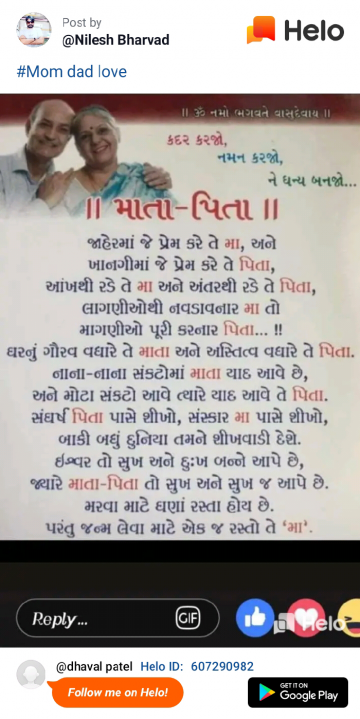 Post by
@Nilesh Bharvad
Helo
#Mom dad love
|| ૐ નમો ભગવતે વાસુદેવાય ||
કદર કરજો,
નમન કરજો,
ને ધન્ય બનજો...
|| માતા-પિતા ||
જાહેરમાં જે પ્રેમ કરે તે મા, અને
ખાનગીમાં જે પ્રેમ કરે તે પિતા,
આંખથી રડે તે મા અને અંતરથી રડે તે પિતા,
લાગણીઓથી નવડાવનાર મા તો
માગણીઓ પૂરી કરનાર પિતા... !!
ઘરનું ગૌરવ વધારે તે માતા અને અસ્તિત્વ વધારે તે પિતા.
નાના-નાના સંકટોમાં માતા યાદ આવે છે,
અને મોટા સંકટો આવે ત્યારે યાદ આવે તે પિતા.
સંઘર્ષ પિતા પાસે શીખો, સંસ્કાર મા પાસે શીખો,
બાકી બધું દુનિયા તમને શીખવાડી દેશે.
ઇશ્વર તો સુખ અને દુઃખ બન્ને આપે છે,
જ્યારે માતા-પિતા તો સુખ અને સુખ જ આપે છે.
મરવા માટે ઘણાં રસ્તા હોય છે.
પરંતુ જન્મ લેવા માટે એક જ રસ્તો તે ‘મા’.
Reply...
GIF
Helo
@dhaval patel Helo ID: 607290982
Follow me on Helo!
GET IT ON
Google Play